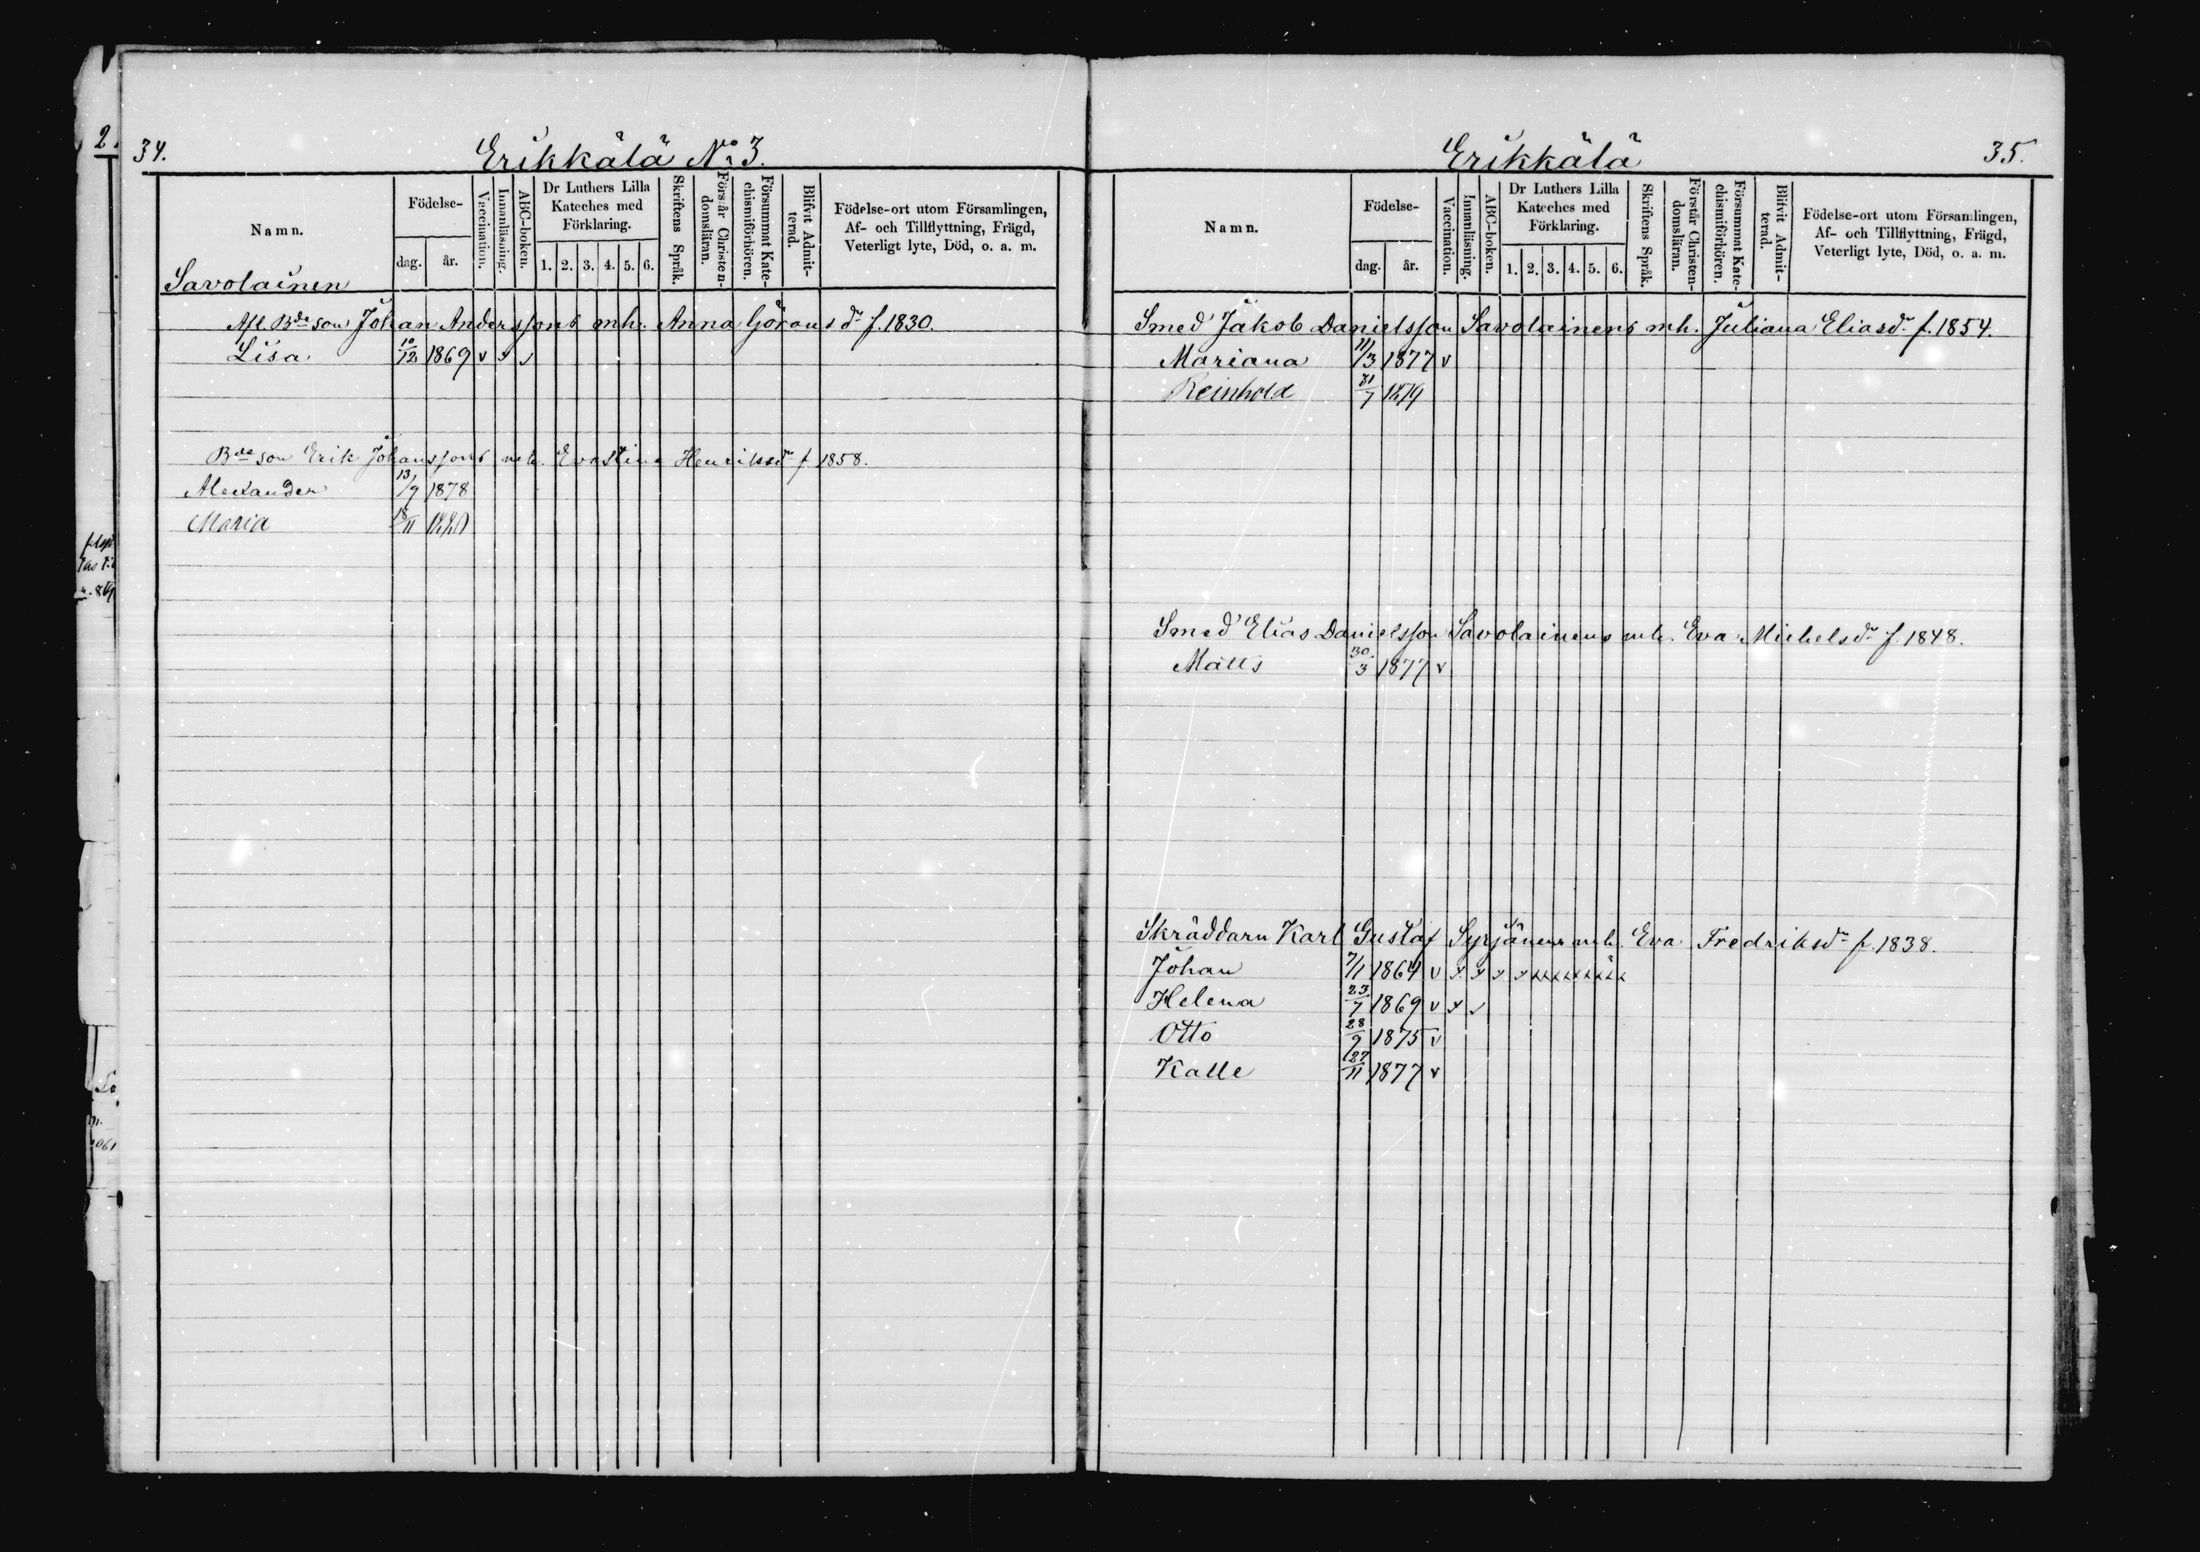 34.
Erikkälä No 3.
Namn.
Födelse-
dag.
år.
Vaccination.
Innanläsning.
ABC-boken.
Dr Luthers Lilla
Kateches med
Förklaring.
1. 2. 3. 4. 5. 6.
Skriftens Språk.
Förstår Christen-
domsläran.
Försummat Kate-
chismiförhören.
Blifvit Admit-
terad.
Födelse-ort utom Församlingen,
Af- och Tillflyttning, Frägd,
Veterligt lyte, Död, o. a. m.
Savolainen
Afl. Bde son Johan Anderssons mh. Anna Göransdr f. 1830.
Lisa 10/12 1869 v x v
Bde son Erik Johanssons mh. Evastina Henriksdr f. 1858.
Alexander 13/9 1878
Maria 18/11 1880
Erikkälä
35.
Namn.
Födelse-
dag.
år.
Vaccination.
Innanläsning.
ABC-boken.
Dr Luthers Lilla
Kateches med
Förklaring.
1. 2. 3. 4. 5. 6.
Skriftens Språk.
Förstår Christen-
domsläran.
Försummat Kate-
chismiförhören.
Blifvit Admit-
terad.
Födelse-ort utom Församlingen,
Af- och Tillflyttning, Frägd,
Veterligt lyte, Död, o. a. m.
Smed Jakob Danielsson Savolainens mh. Juliana Eliasdr f. 1854.
Mariana 11/3 1877 v
Reinhold 31/7 1879
Smed Elias Danielsson Savolainens mh. Eva Michelsdr f. 1848.
Matts 30/3 1877 v
Skräddarn Karl Gustaf Syrjänens mh. Eva Fredriksdr f. 1838.
Johan 7/1 1864 v x x x x x x x x x x x
Helena 23/7 1869 v x v
Otto 28/9 1875 v
Kalle 27/11 1877 v